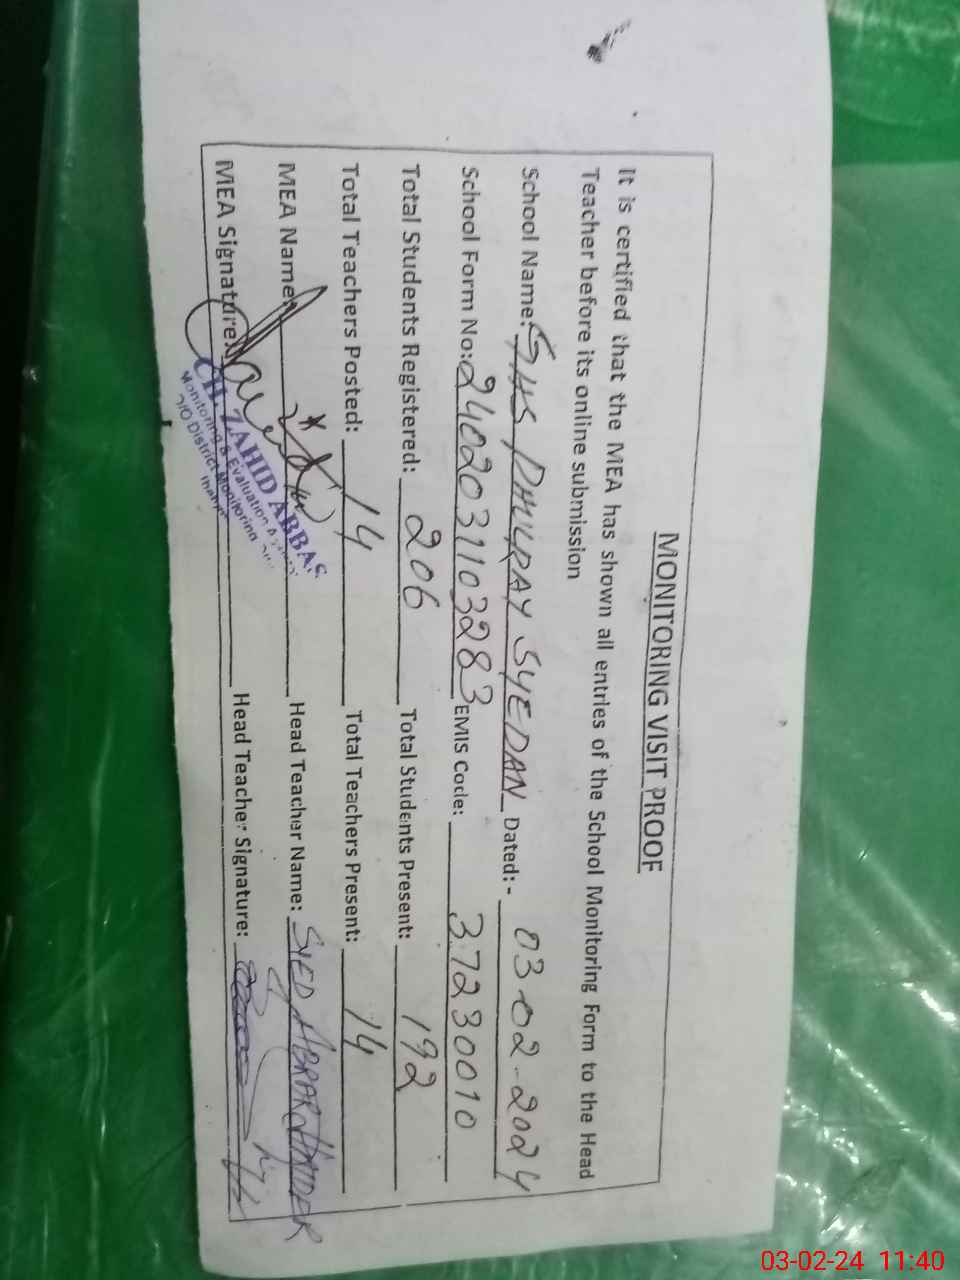 MONITORING VISIT PROOF
It is certified that the MEA has shown all entries of the School Monitoring Form to the Head
Teacher before its online submission
School Name: GHS PHURAY SYEDAN Dated:- 03-02-2024
School Form No: 2402031103283 EMIS Code: 37230010
Total Students Registered: 206 Total Students Present: 192
Total Teachers Posted: 14 Total Teachers Present: 14
MEA Name: Head Teacher Name: SYED ABRAR HAIDER
MEA Signature: Head Teacher Signature:
CH. ZAHID ABBAS
Monitoring & Evaluation
O/O District Monitoring
03-02-24 11:40